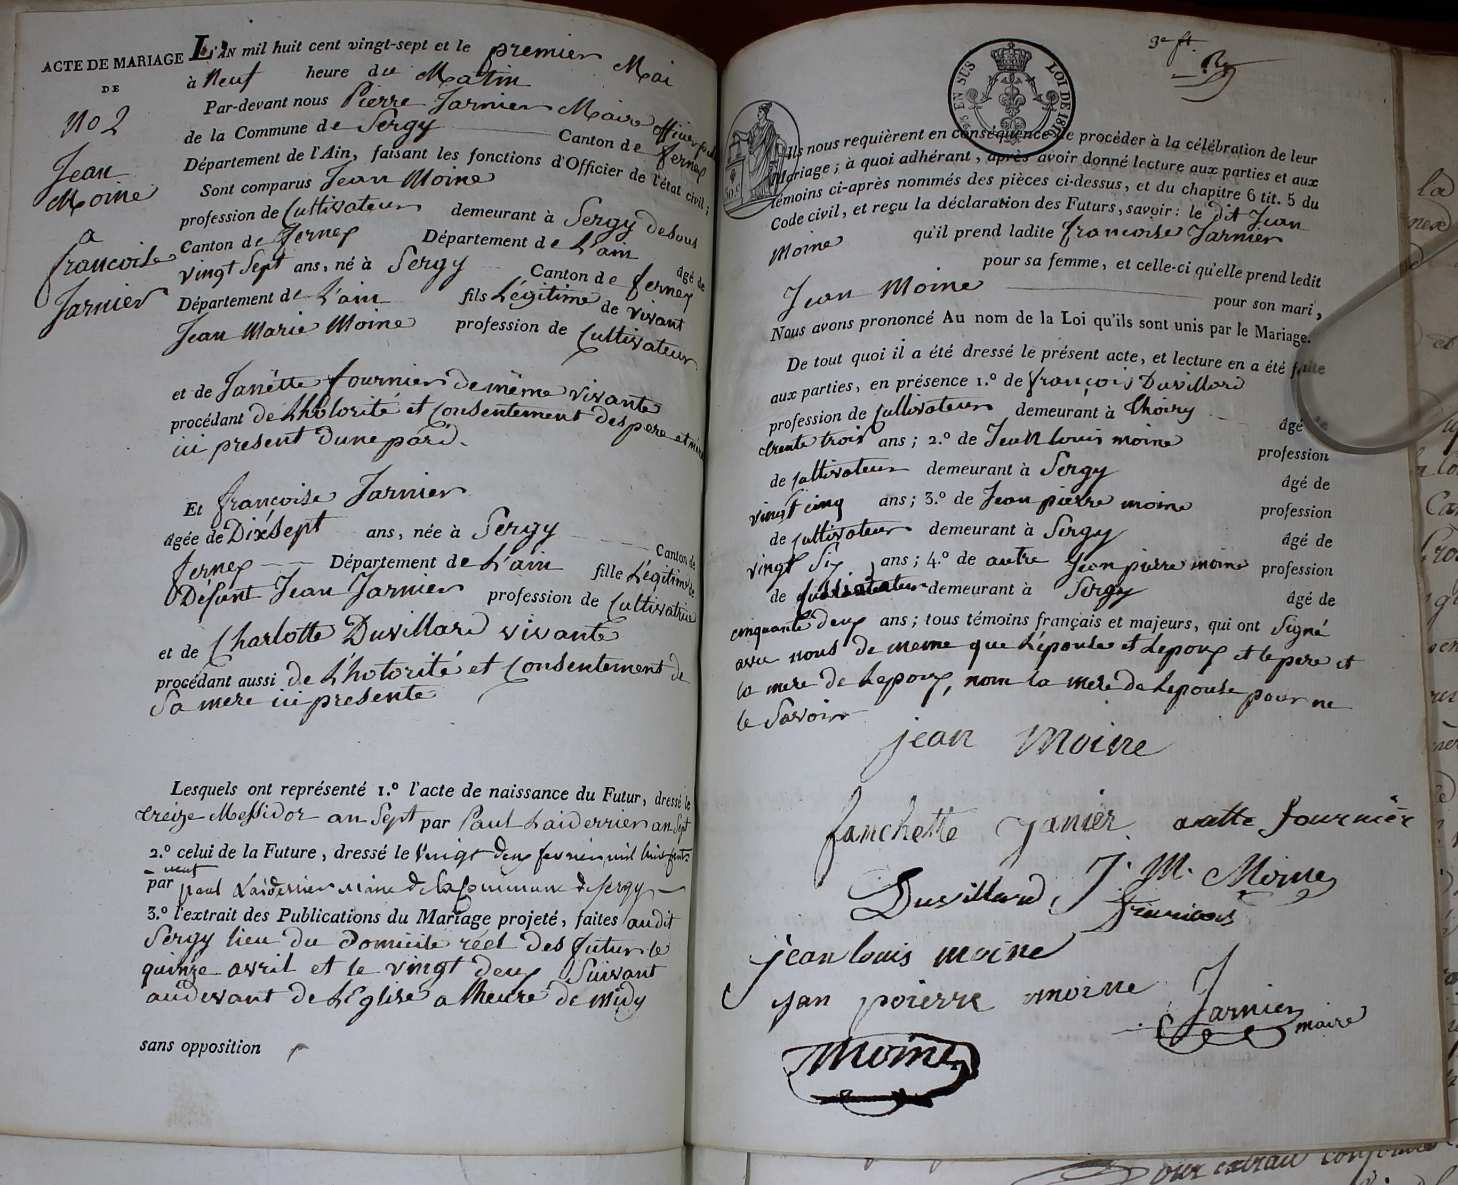 ACTE DE MARIAGE
DE
No 2
Jean
Moine
a
francoise
Jarnier
L'AN mil huit cent vingt-sept et le premier Mai
à Neuf heure du Matin
Par-devant nous Pierre Jarnier Maire officier
de la Commune de Sergy Canton de ferney
Département de l'Ain, faisant les fonctions d'Officier de l'état civil;
Sont comparus Jean Moine
profession de Cultivateur demeurant à Sergy desous
Canton de ferney Département de L'ain âgé de
vingt sept ans, né à Sergy Canton de ferney
Département de L'ain fils Légitime de vivant
Jean Marie Moine profession de Cultivateur
et de Janétte fournier de même vivante
procédant de Lhotorité et Consentement des pere et mere
ici present dune pard.
Et francoise Jarnier
âgée de Dix sept ans, née à Sergy Canton de
ferney Département de L'ain fille Légitime de
Défunt Jean Jarnier profession de Cultivatrice
et de Charlotte Duvillard vivante
procédant aussi de L'hotorité et Consentement de
Sa mere ici presente
Lesquels ont représenté 1.º l'acte de naissance du Futur, dressé le
treize Messidor an Sept par Paul Laiderrier an Sept
2.º celui de la Future, dressé le vingt deux fevrier mil huit cent
neuf
par paul Laiderrier maire de la Commune de Sergy
3.º l'extrait des Publications du Mariage projeté, faites audit
Sergy lieu du Domicile réel des futur le
quinze avril et le vingt deux Suivant
audevant de LEglise a lheure de midy
sans opposition
9e ft
TIMB
LOI DE 1816
EN SUS
Ils nous requièrent en conséquence de procéder à la célébration de leur
mariage; à quoi adhérant, après avoir donné lecture aux parties et aux
témoins ci-après nommés des pièces ci-dessus, et du chapitre 6 tit. 5 du
Code civil, et reçu la déclaration des Futurs, savoir: le dit Jean
Moine qu'il prend ladite francoise Jarnier
pour sa femme, et celle-ci qu'elle prend ledit
Jean Moine pour son mari,
Nous avons prononcé Au nom de la Loi qu'ils sont unis par le Mariage.
De tout quoi il a été dressé le présent acte, et lecture en a été faite
aux parties, en présence 1.º de françois Duvillard
profession de Cultivateur demeurant à thoiry âgé de
trente trois ans; 2.º de Jean louis moine profession
de Cultivateur demeurant à Sergy âgé de
vingt cinq ans; 3.º de Jean pierre moine profession
de Cultivateur demeurant à Sergy âgé de
vingt Six ans; 4.º de autre Jean pierre moine profession
de Cultivateur demeurant à Sergy âgé de
cinquante deux ans; tous témoins français et majeurs, qui ont signé
avec nous de meme que L'épouse et Lepoux et le pere et
la mere de Lepoux, nom la mere de Lepouse pour ne
le Savoir
jean Moine
fanchette Janier. natte fournier
Duvillard, J. M. Moine
francois
jean louis moine
jan poierre moine
Jarnier
maire
Moine